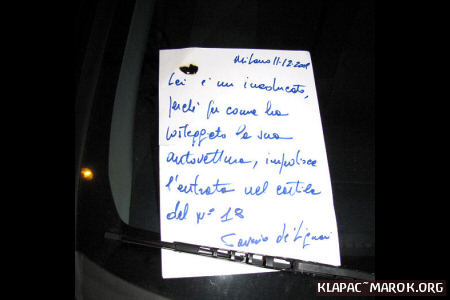 Milano 11-12-2008
Lei è un ineducato,
perché per come ha
posteggiato la sua
autovettura, impedisce
l'entrata nel cortile
del n° 18
KLAPAC~MAROK.ORG